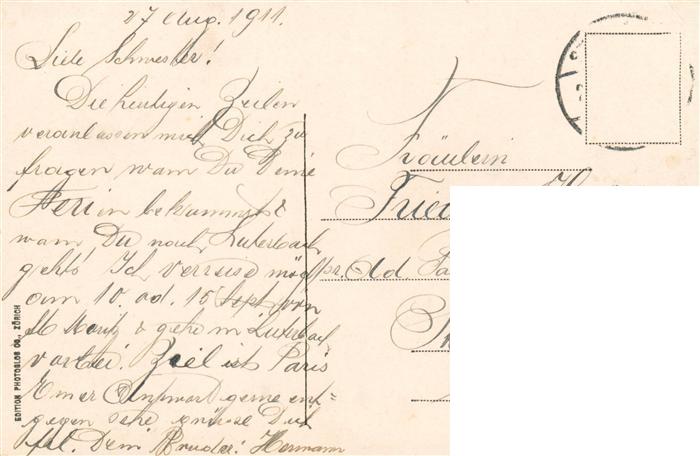 27 Aug. 1911.
Liebe Schwester!
Die heutigen Zeilen
veranlassen mich Dich zu
fragen wann Du Deine
Ferien bekommst &
wann Du nach Luterbach
gehst Ich verreise mögl
am 10. od. 15 Sept von
St Moritz & gehe in Luterbach
vorbei. Ziel ist Paris
Einer Antwort gerne ent-
gegen sehe grüsse Dich
frl. Dein Bruder: Hermann
Fräulein
pr. Ad.
EDITION PHOTOGLOB CO., ZÜRICH